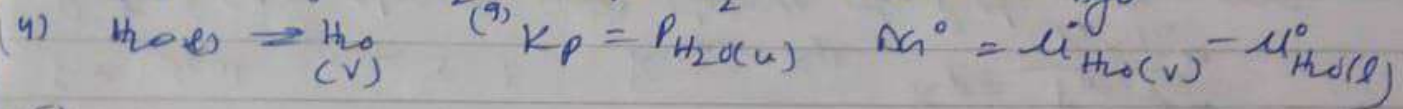 (4) H₂O(l) ⇌ H₂O(V) (9) Kp = P H₂O(v) ΔG° = μ°H₂O(V) − μ°H₂O(l)